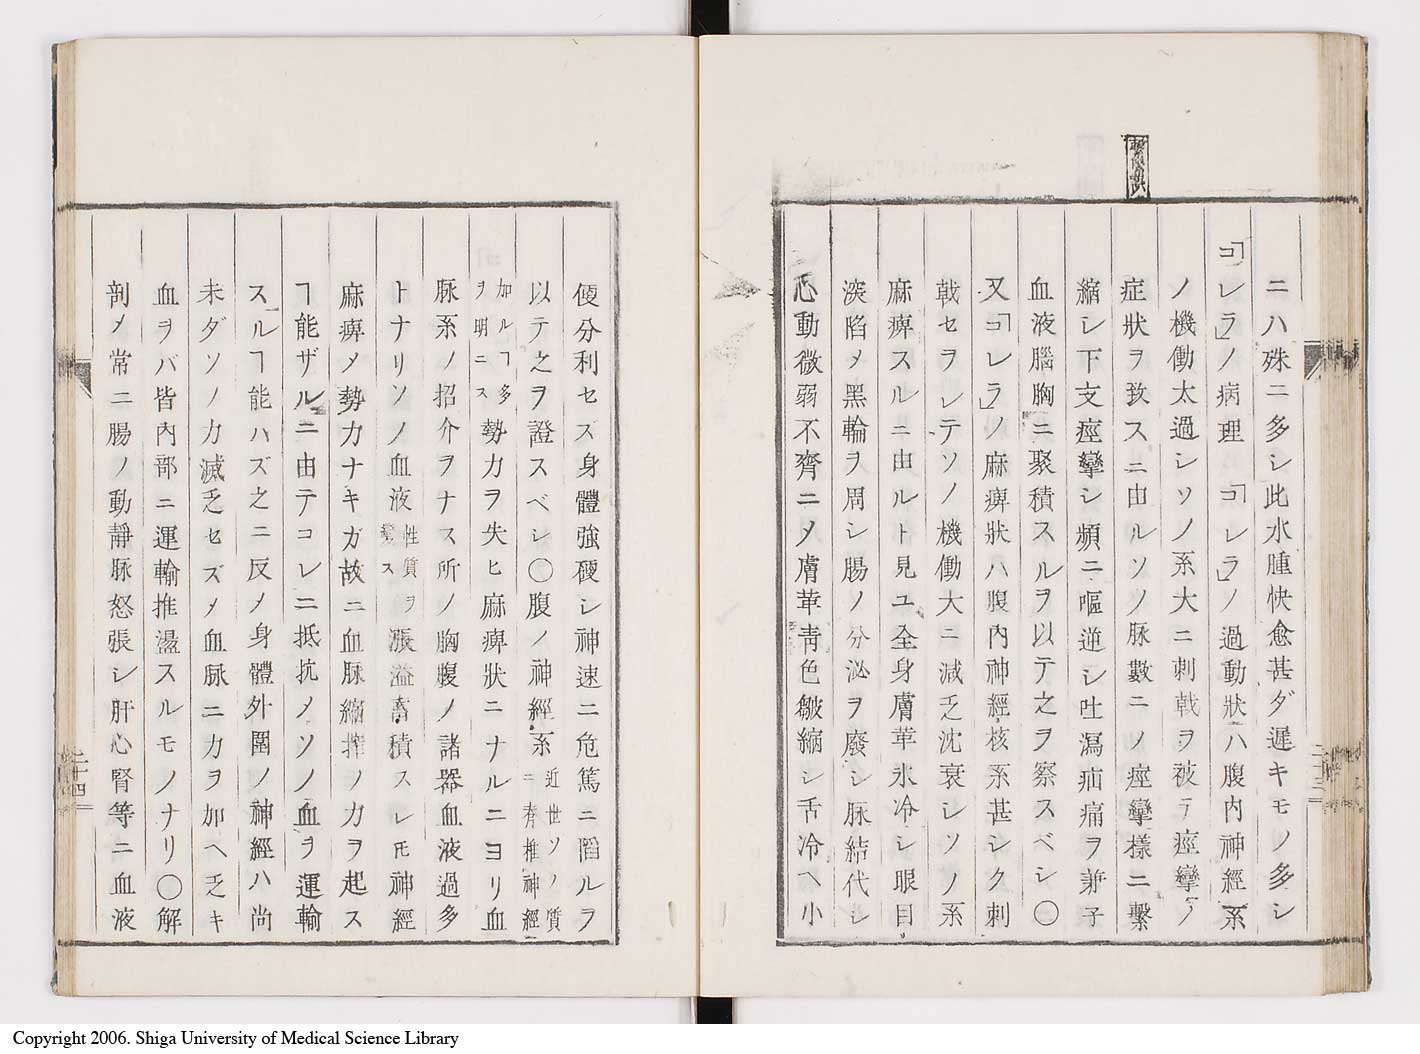 ニハ殊ニ多シ此水腫快愈甚ダ遲キモノ多シ
「コレラ」ノ病理「コレラ」ノ過動狀ハ腹内神經系
ノ機働太過シソノ系大ニ刺戟ヲ被テ痙攣ノ
症狀ヲ致スニ由ルソノ脉數ニノ痙攣樣ニ繫
縮シ下支痙攣シ頻ニ嘔逆シ吐瀉疝痛ヲ兼子
血液腦胸ニ聚積スルヲ以テ之ヲ察スベシ〇
又「コレラ」ノ麻痺狀ハ腹内神經核系甚シク刺
戟セヲレテソノ機働大ニ減乏沈衰シソノ系
麻痺スルニ由ルト見ユ全身膚華氷冷シ眼目
深陷メ黑輪ヲ周シ腸ノ分泌ヲ廢シ脉結代シ
心動微弱不齊ニメ膚華靑色皺縮シ舌冷ヘ小
二十三
便分利セス身體強硬シ神速ニ危篤ニ陷ルヲ
以テ之ヲ證スベシ〇腹ノ神經系近世ソノ質ニ脊椎神經
加ルヿ多ヲ明ニス勢力ヲ失ヒ麻痺狀ニナルニヨリ血
脉系ノ招介ヲナス所ノ胸腹ノ諸器血液過多
トナリソノ血液性質ヲ變ス漲溢畜積スレ𪜈神經
麻痺メ勢力ナキガ故ニ血脉縮搾ノ力ヲ起ス
ヿ能ザルニ由テコレニ抵抗メソノ血ヲ運輸
スルヿ能ハズ之ニ反メ身體外圍ノ神經ハ尚
未ダソノ力滅乏セズメ血脉ニ力ヲ加ヘ乏キ
血ヲバ皆内部ニ運輸推盪スルモノナリ〇解
剖メ常ニ腸ノ動靜脉怒張シ肝心腎等ニ血液
二十四
Copyright 2006. Shiga University of Medical Science Library